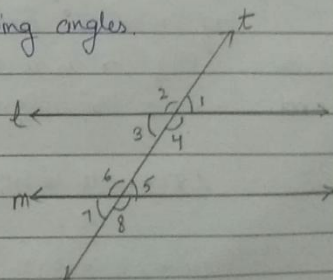 ing angles.
t
2 1
l
3 4
6 5
m
7 8